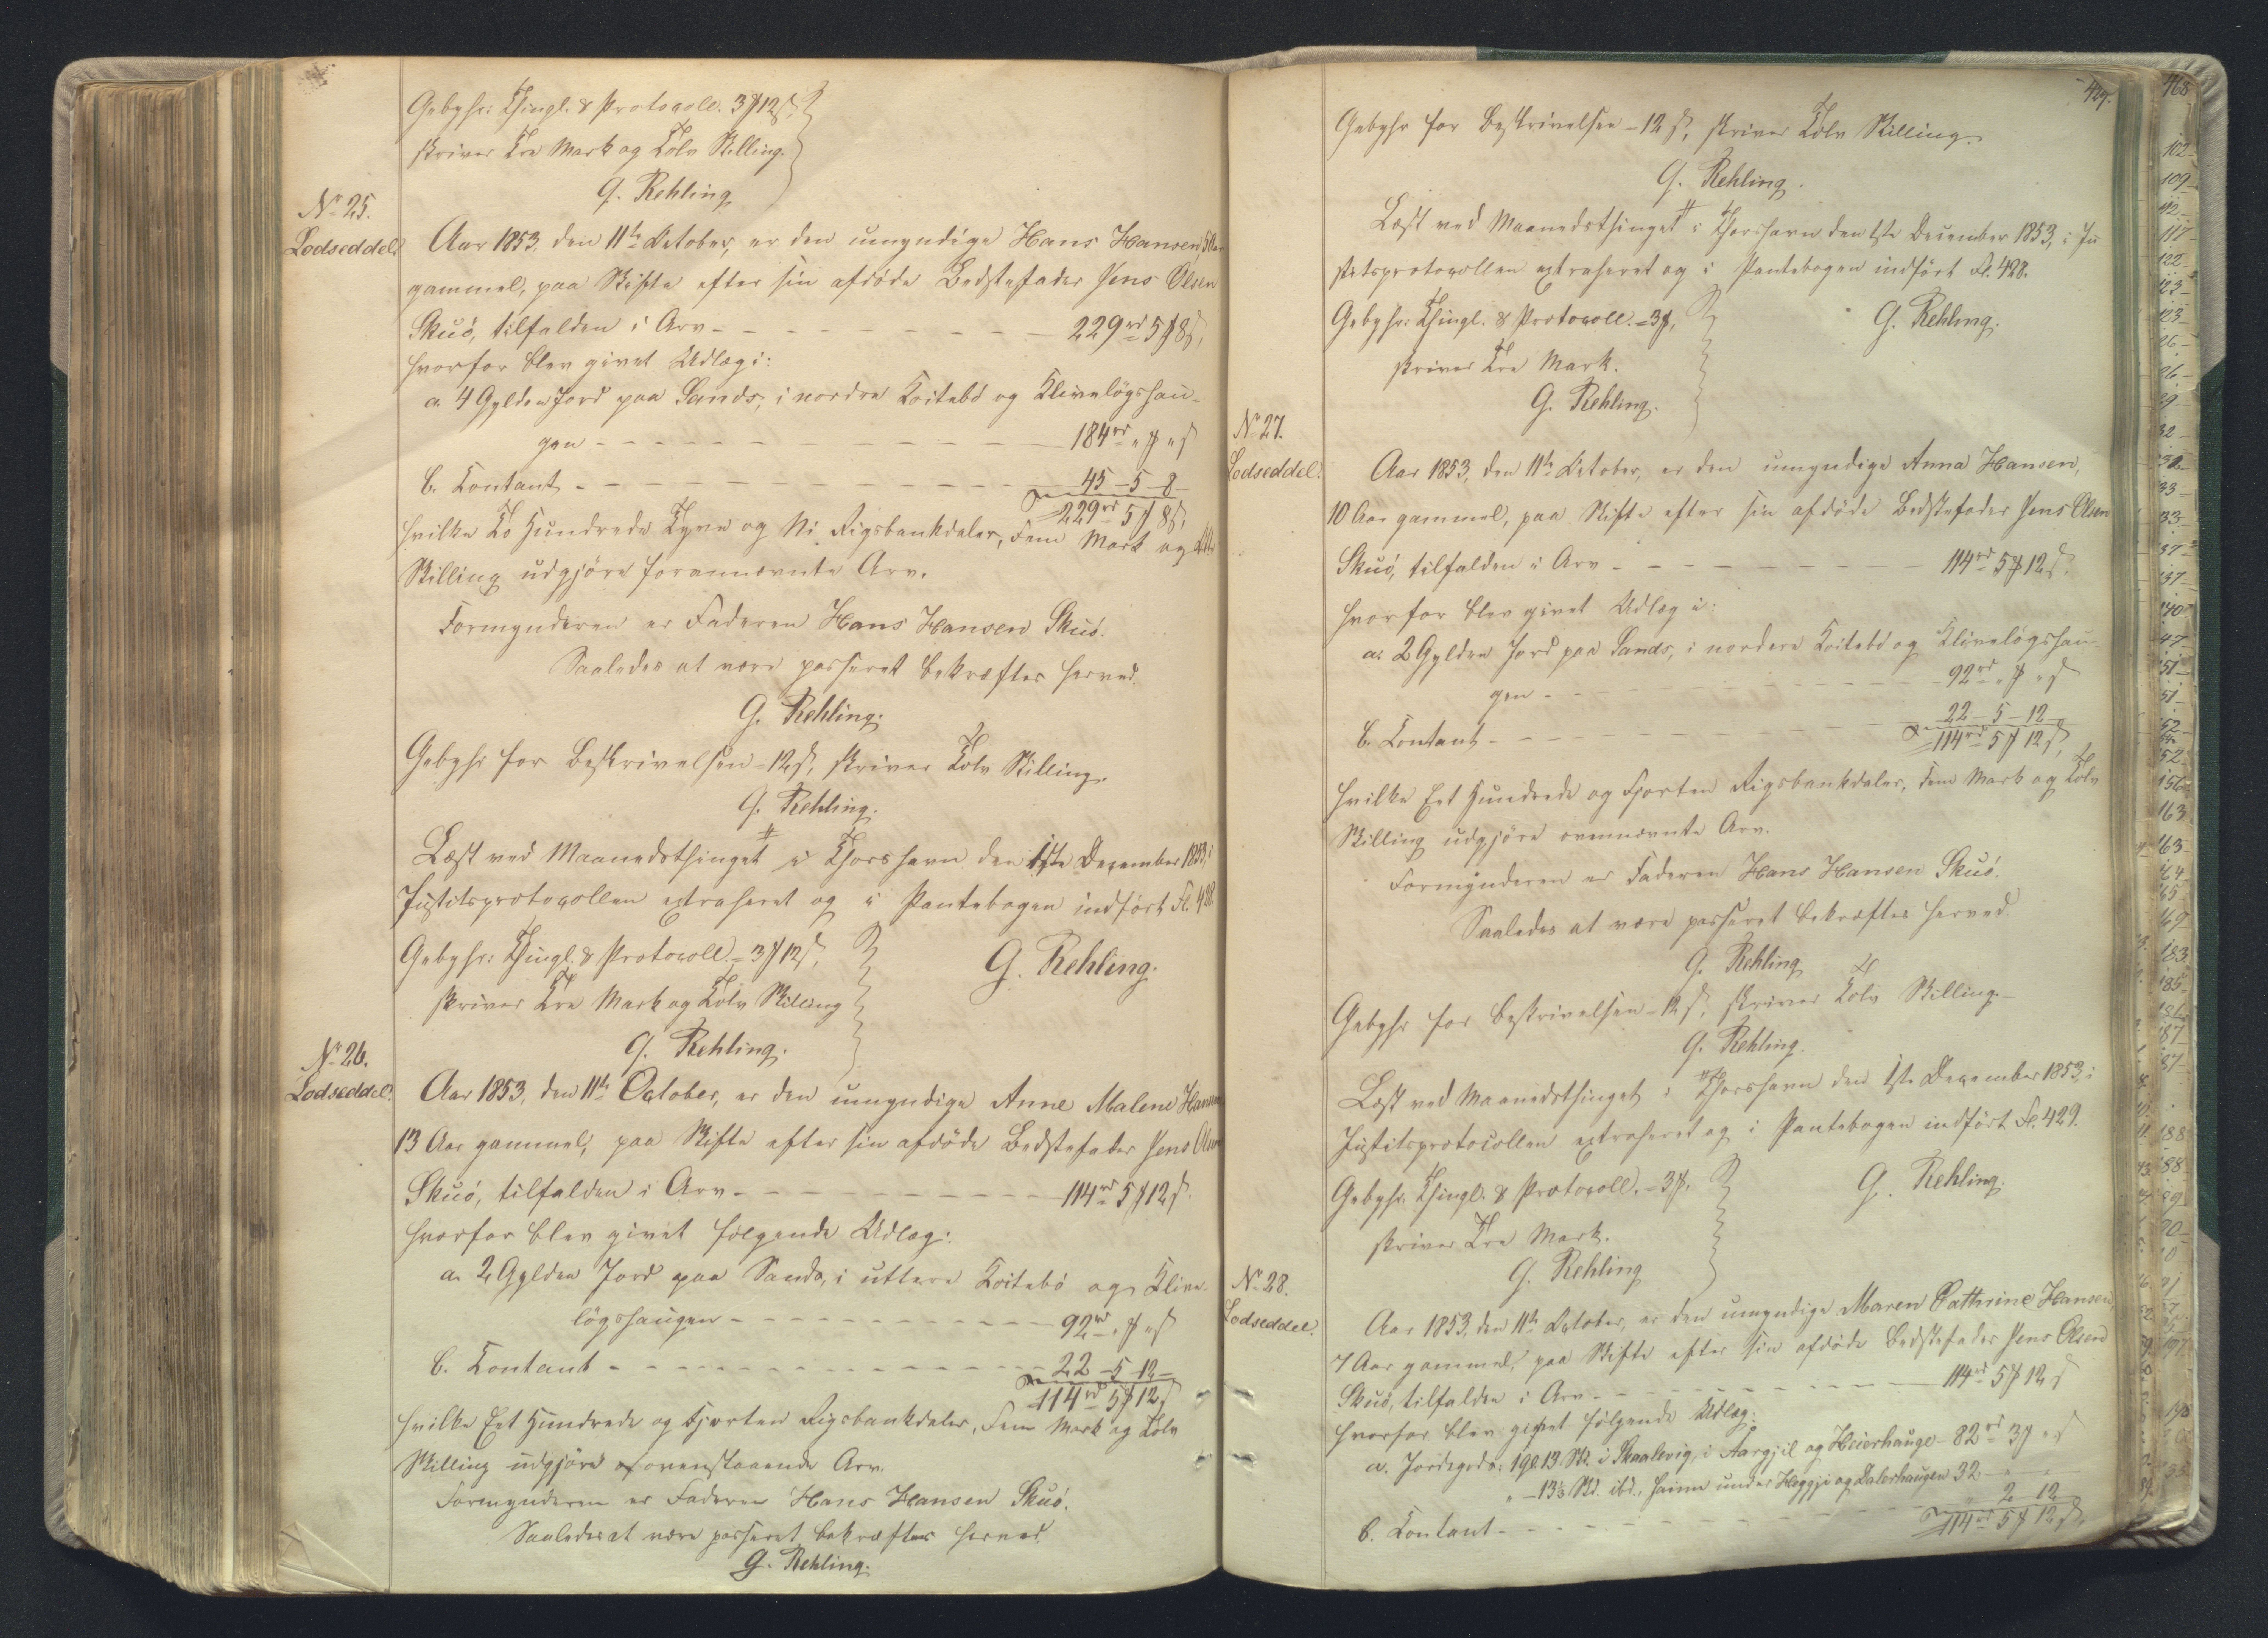 Gebyhr: Thingl. & Protocoll. 3 ℳ 12 ß,
skriver Tre Mark og Tolv Skilling.
G. Rehling
No 25.
Lodseddel.
Aar 1853, den 11te October, er den umyndige Hans Hansen,
gammel, paa Skifte efter sin afdöde Bedstefader Jens Olsen
Skuö, tilfalden i Arv - - - 229 rd 5 ℳ 8 ß,
hvorfor blev givet Udlæg i:
a. 4 Gylden Jord paa Sands, i nordre Troitebö og Klivelögshau-
gen - - - 184 rd " ℳ " ß
b. Contant - - - 45 - 5 - 8 -
229 rd 5 ℳ 8 ß,
hvilke To Hundrede Tyve og Ni Rigsbankdaler, Fem Mark og Otte
Skilling udgjöre forannævnte Arv.
Formynderen er Faderen Hans Hansen Skuö.
Saaledes at være passeret bekræftes herved.
G. Rehling.
Gebyhr for Beskrivelsen - 12 ß, skriver Tolv Skilling.
G. Rehling.
Læst ved Maanedsthinget i Thorshavn den 1ste December 1853, i
Justitsprotocollen extraheret og i Pantebogen indfört Fl. 428
Gebyhr: Thingl. & Protocoll. = 3 ℳ 12 ß,
G. Rehling.
skriver Tre Mark og Tolv Skilling
G. Rehling.
No 26.
Lodseddel.
Aar 1853, den 11te October, er den umyndige Anne Malene Hansen
13 Aar gammel, paa Skifte efter sin afdöde Bedstefader Jens Olsen
Skuö, tilfalden i Arv - - - 114 rd 5 ℳ 12 ß.
hvorfor blev givet fölgende Udlæg:
a. 2 Gylden Jord paa Sands, i uttere Troitebö og Klive-
lögshaugen - - - 92 rd " ℳ " ß
b. Contant - - - 22 - 5 - 12 -
114 rd 5 ℳ 12 ß
hvilke Eet Hundrede og Fjorten Rigsbankdaler, Fem Mark og Tolv
Skilling udgjöre ovenstaaende Arv.
Formynderen er Faderen Hans Hansen Skuö.
Saaledes at være passeret bekræftes herved.
G. Rehling.
429.
Gebyhr for Beskrivelsen - 12 ß, skriver Tolv Skilling.
G. Rehling.
Læst ved Maanedsthinget i Thorshavn den 1ste December 1853, i Ju-
stitsprotocollen extraheret og i Pantebogen indfört Fl. 428.
Gebyhr: Thingl. & Protocoll. = 3 ℳ,
G. Rehling.
skriver Tre Mark.
G. Rehling.
No 27.
Lodseddel.
Aar 1853, den 11te October, er den umyndige Anna Hansen,
10 Aar gammel, paa Skifte efter sin afdöde Bedstefader Jens Olsen
Skuö, tilfalden i Arv - - - 114 rd 5 ℳ 12 ß.
hvorfor blev givet Udlæg i:
a. 2 Gylden Jord paa Sands, i nordere Troitebö og Klivelögshau
gen - - - 92 rd " ℳ " ß
b. Contant - - - 22 - 5 - 12 -
114 rd 5 ℳ 12 ß,
hvilke Eet Hundrede og Fjorten Rigsbankdaler, Fem Mark og Tolv
Skilling udgjöre ovennævnte Arv.
Formynderen er Faderen Hans Hansen Skuö.
Saaledes at være passeret bekræftes herved.
G. Rehling
Gebyhr for Beskrivelsen - 12 ß, skriver Tolv Skilling. -
G. Rehling.
Læst ved Maanedsthinget i Thorshavn den 1ste December 1853, i
Justitsprotocollen extraheret og i Pantebogen indfört Fl. 429.
Gebyhr: Thingl. & Protocoll. = 3 ℳ.
G. Rehling.
skriver Tre Mark.
G. Rehling
No 28.
Lodseddel.
Aar 1853, den 11te October, er den umyndige Maren Cathrine Hansen,
7 Aar gammel, paa Skifte efter sin afdöde Bedstefader Jens Olsen
Skuö, tilfalden i Arv - - - 114 rd 5 ℳ 12 ß
hvorfor blev givet fölgende Udlæg:
a. Jordegods: 1 Gl. 13 Sk. i Skaalevig, i Aargjil og Heierhauge - 82 rd 3 ℳ " ß
" - 13⅓ Sk. ibd., heime under Heggje og Dalerhaugen 32 " "
b. Contant - - - " 2 12
114 rd 5 ℳ 12 ß,